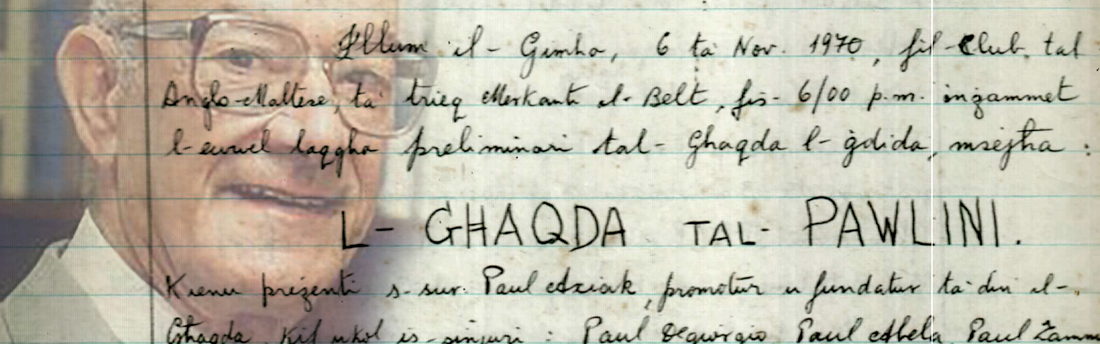 Illum il- Gimha, 6 ta' Nov. 1970, fil-Club tal
Anglo-Maltese, ta' trieq Merkanti il-Belt, fis- 6/00 p.m. inzammet
l-ewwel laqgha preliminari tal- Ghaqda l- ġdida, msejħa :
L- GHAQDA TAL- PAWLINI.
Kienu prezenti s-sur. Paul Aziak, promotur u fundatur ta' din il-
Ghaqda, kif ukol is-sinjuri : Paul Degiorgio, Paul Abela, Paul